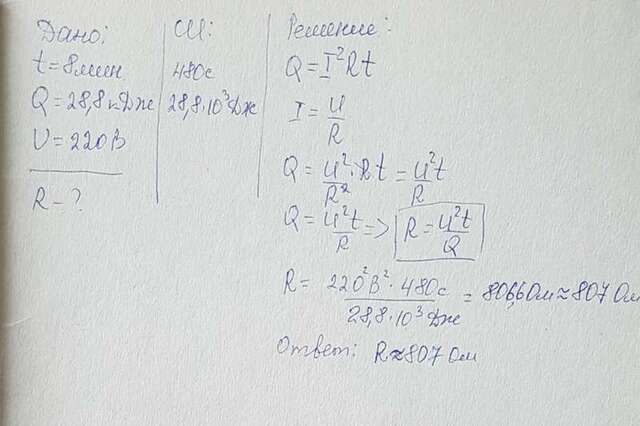 Дано:
t = 8 мин
Q = 28,8 кДж
U = 220 В
R - ?
СИ:
480 с
28,8·10³ Дж
Решение:
Q = I²Rt
I = U/R
Q = U²/R² · Rt = U²t/R
Q = U²t/R => R = U²t/Q
R = 220²В² · 480с / 28,8·10³ Дж = 806,6 Ом ≈ 807 Ом
Ответ: R ≈ 807 Ом